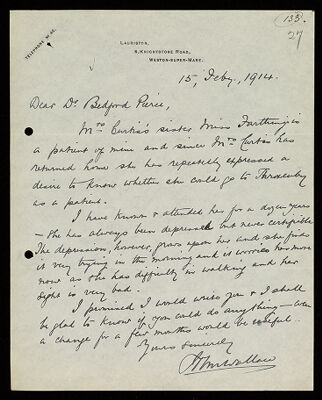 (133.)
27
TELEPHONE No 66.
LAURISTON,
5, KNIGHTSTONE ROAD,
WESTON-SUPER-MARE.
15, Feby, 1914.
Dear Dr Bedford Pierce,
Mrs Curtis's sister Miss Farthing is
a patient of mine and since Mrs Curtis has
returned home she has repeatedly expressed a
desire to know whether she could go to Throxenby
as a patient.
I have known & attended her for a dozen years
— she has always been depressed but never certifiable
The depression, however, grows upon her and she finds
it very trying in the morning and it worries her more
now as she has difficulty in walking and her
sight is very bad.
I promised I would write you & I shall
be glad to know if you could do anything — even
a change for a few months would be useful.
Yours sincerely
Wallace